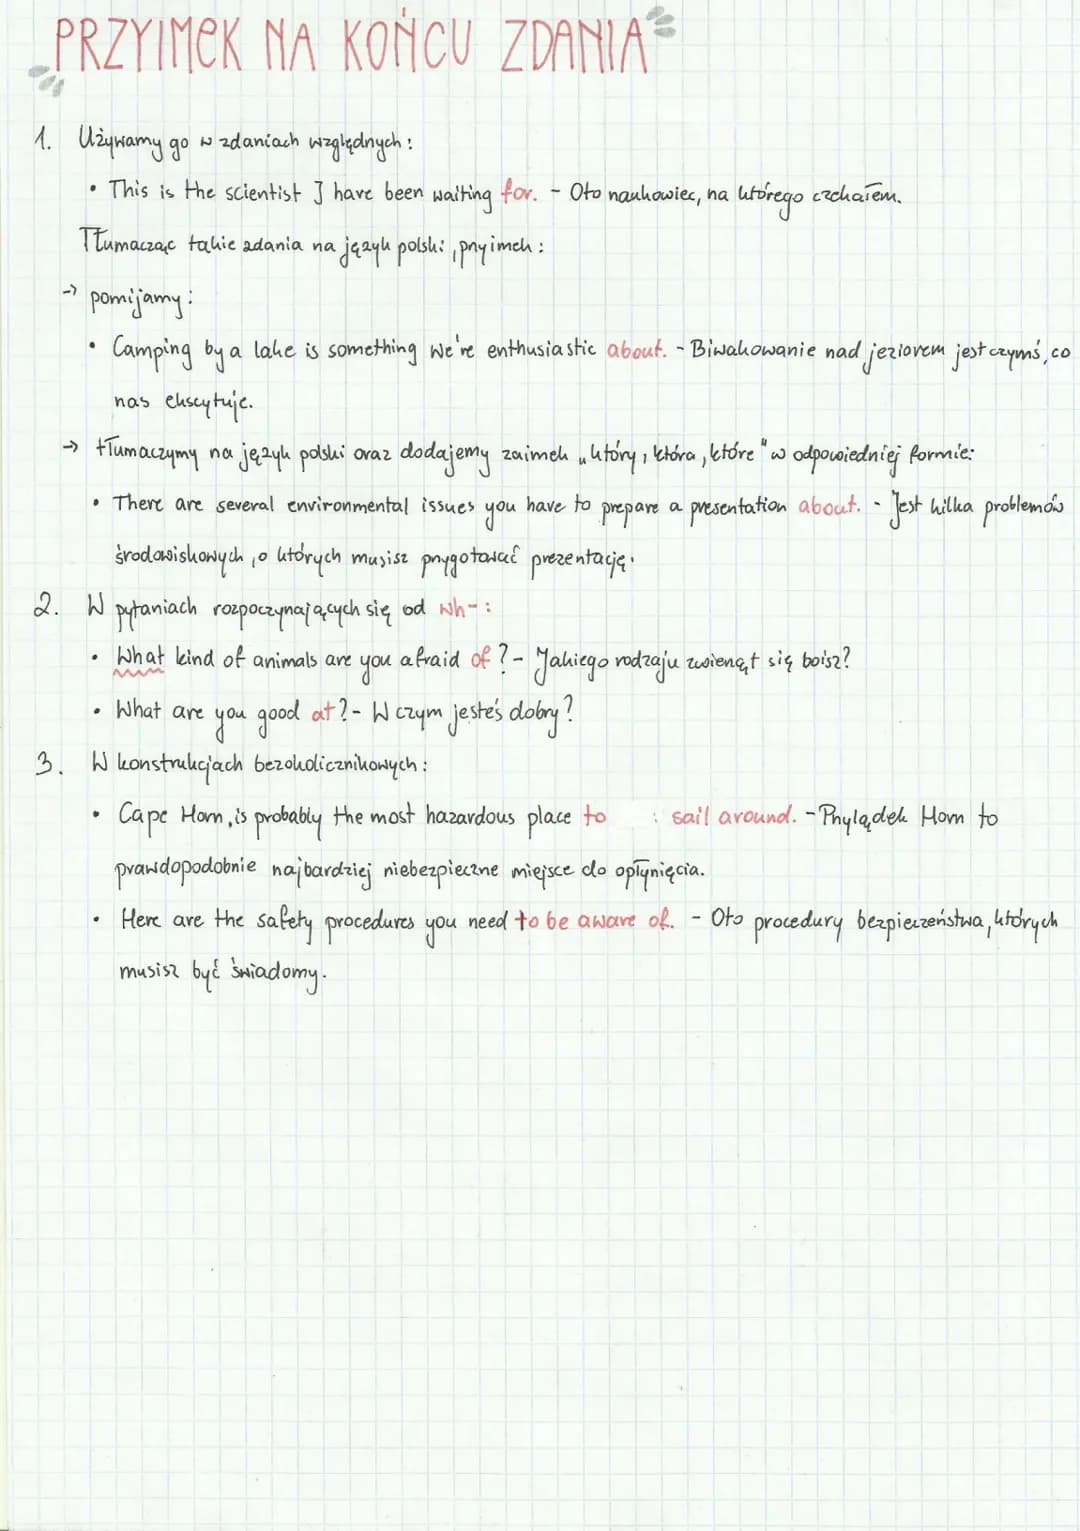 PRZYIMEK NA KOŃCU ZDANIA
1. Używamy go w zdaniach względnych:
• This is the scientist I have been waiting for. - Oto naukowiec, na którego czekałem.
Tłumacząc takie zdania na język polski, przyimek:
→ pomijamy:
• Camping by a lake is something we're enthusiastic about. - Biwakowanie nad jeziorem jest czymś, co
nas ekscytuje.
→ tłumaczymy na język polski oraz dodajemy zaimek „który, która, które" w odpowiedniej formie:
• There are several environmental issues you have to prepare a presentation about. - Jest kilka problemów
środowiskowych, o których musisz przygotować prezentację.
2. W pytaniach rozpoczynających się od wh-:
• What kind of animals are you afraid of? - Jakiego rodzaju zwierząt się boisz?
• What are you good at? - W czym jesteś dobry?
3. W konstrukcjach bezokolicznikowych:
• Cape Horn, is probably the most hazardous place to : sail around. - Przylądek Horn to
prawdopodobnie najbardziej niebezpieczne miejsce do opłynięcia.
• Here are the safety procedures you need to be aware of. - Oto procedury bezpieczeństwa, których
musisz być świadomy.